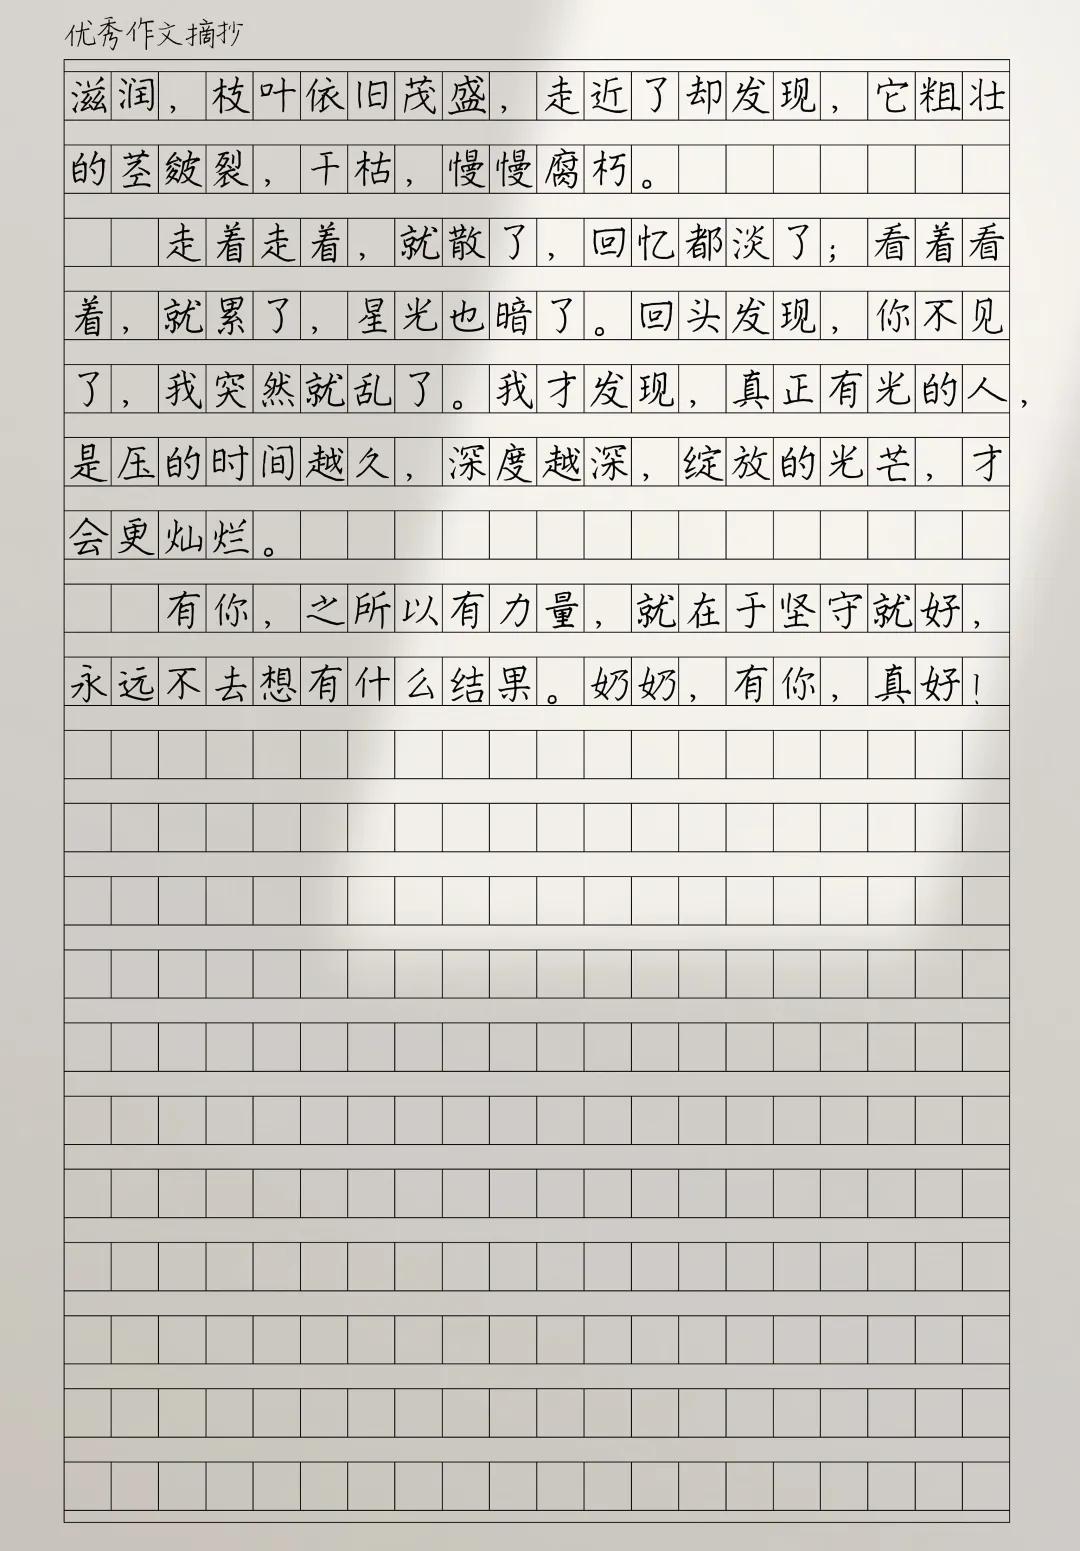 优秀作文摘抄
滋润，枝叶依旧茂盛，走近了却发现，它粗壮
的茎皴裂，干枯，慢慢腐朽。
走着走着，就散了，回忆都淡了；看着看
着，就累了，星光也暗了。回头发现，你不见
了，我突然就乱了。我才发现，真正有光的人，
是压的时间越久，深度越深，绽放的光芒，才
会更灿烂。
有你，之所以有力量，就在于坚守就好，
永远不去想有什么结果。奶奶，有你，真好！